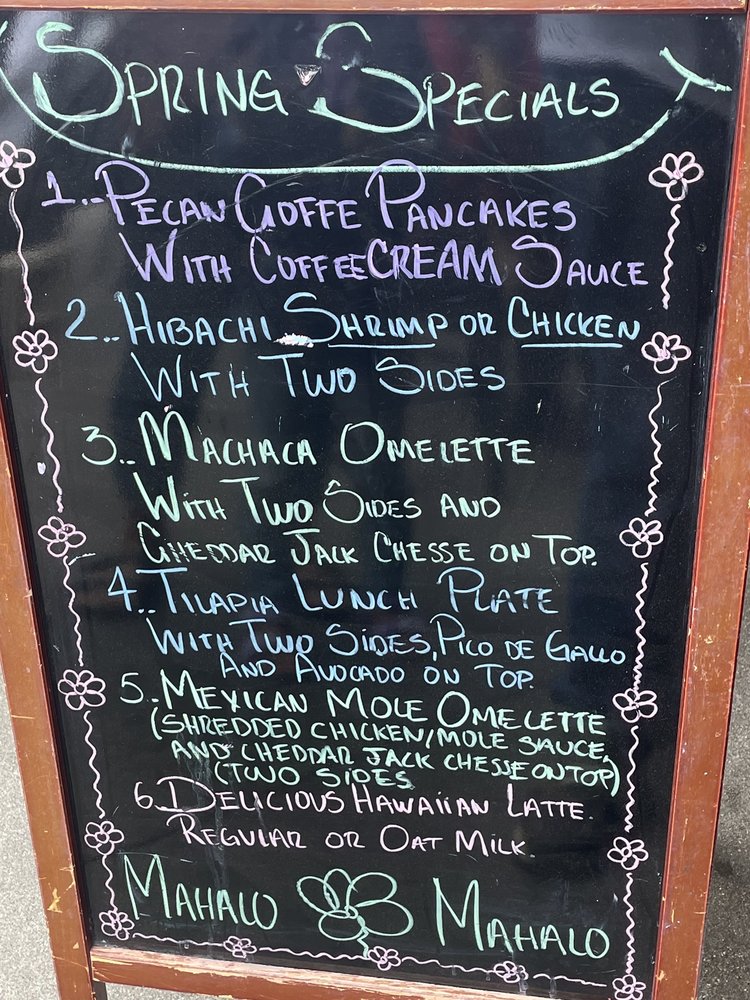 SPRING SPECIALS
1..PECAN COFFE PANCAKES
WITH COFFEECREAM SAUCE
2..HIBACHI SHRIMP OR CHICKEN
WITH TWO SIDES
3..MACHACA OMELETTE
WITH TWO SIDES AND
CHEDDAR JACK CHESSE ON TOP.
4..TILAPIA LUNCH PLATE
WITH TWO SIDES, PICO DE GALLO
AND AVOCADO ON TOP.
5..MEXICAN MOLE OMELETTE
(SHREDDED CHICKEN/MOLE SAUCE,
AND CHEDDAR JACK CHESSE ON TOP)
(TWO SIDES
6..DELICIOUS HAWAIIAN LATTE.
REGULAR OR OAT MILK.
MAHALO MAHALO